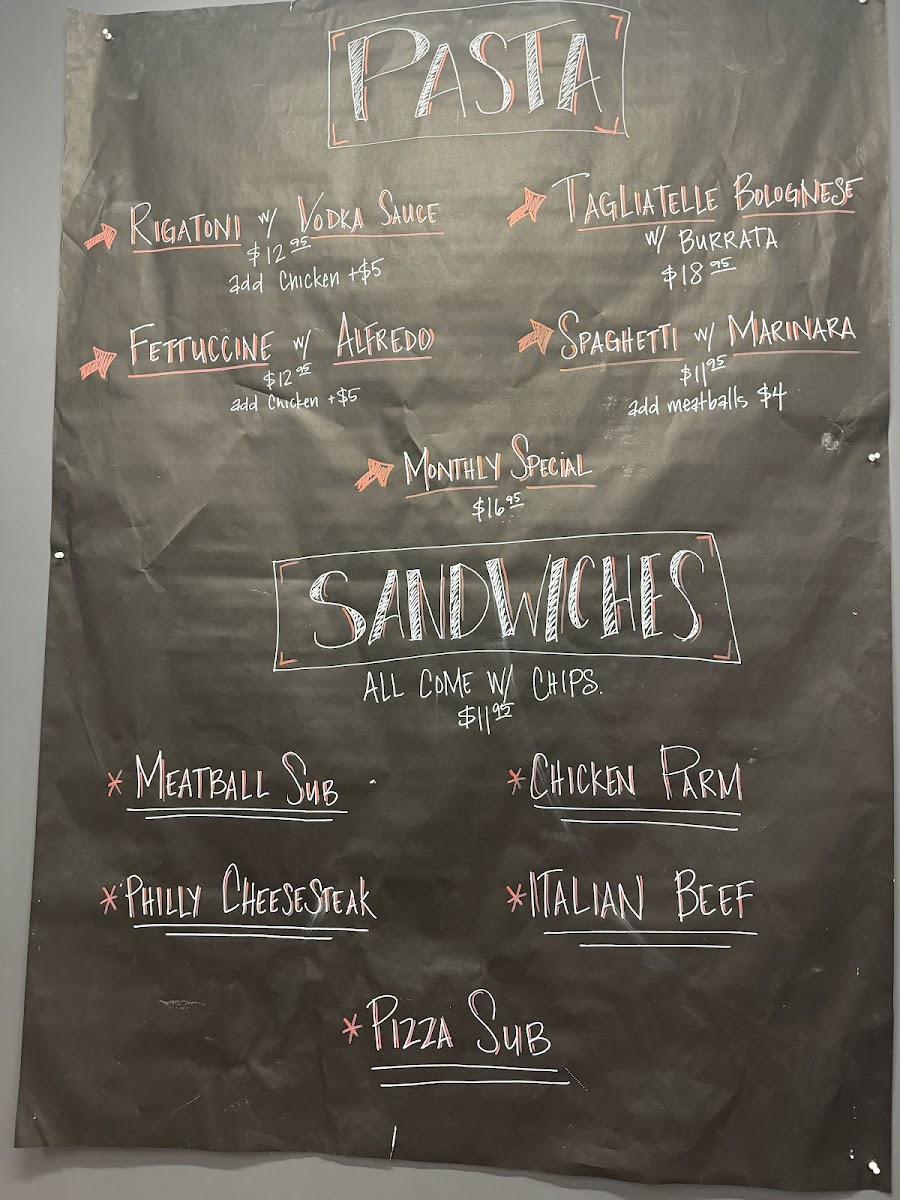 PASTA
RIGATONI w/ VODKA SAUCE
$12.95
add Chicken +$5
TAGLIATELLE BOLOGNESE
w/ BURRATA
$18.95
FETTUCCINE w/ ALFREDO
$12.95
add Chicken +$5
SPAGHETTI w/ MARINARA
$11.95
add meatballs $4
MONTHLY SPECIAL
$16.95
SANDWICHES
ALL COME W/ CHIPS.
$11.95
* MEATBALL SUB
* CHICKEN PARM
* PHILLY CHEESESTEAK
* ITALIAN BEEF
* PIZZA SUB